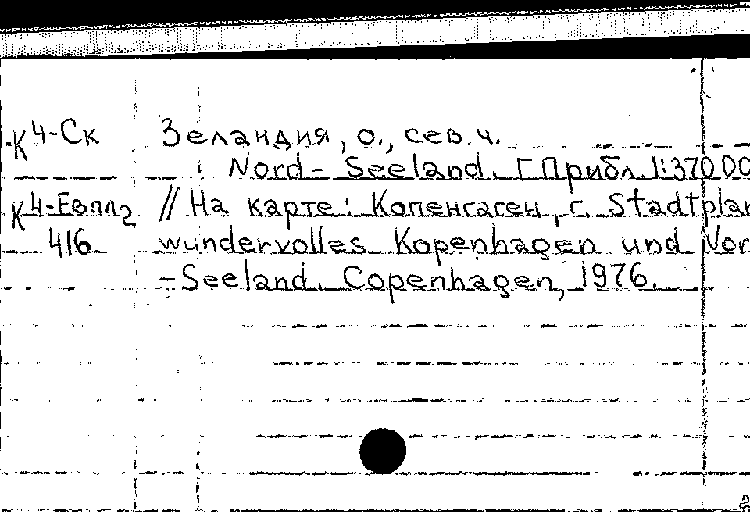 К4-Ск Зеландия, о., сев.ч.
Nord-Seeland. [Прибл. 1:370 00
К4-Евпл2 // На карте: Копенгаген, г. Stadtplan
416 wundervolles Kopenhagen und Nor
-Seeland. Copenhagen, 1976.